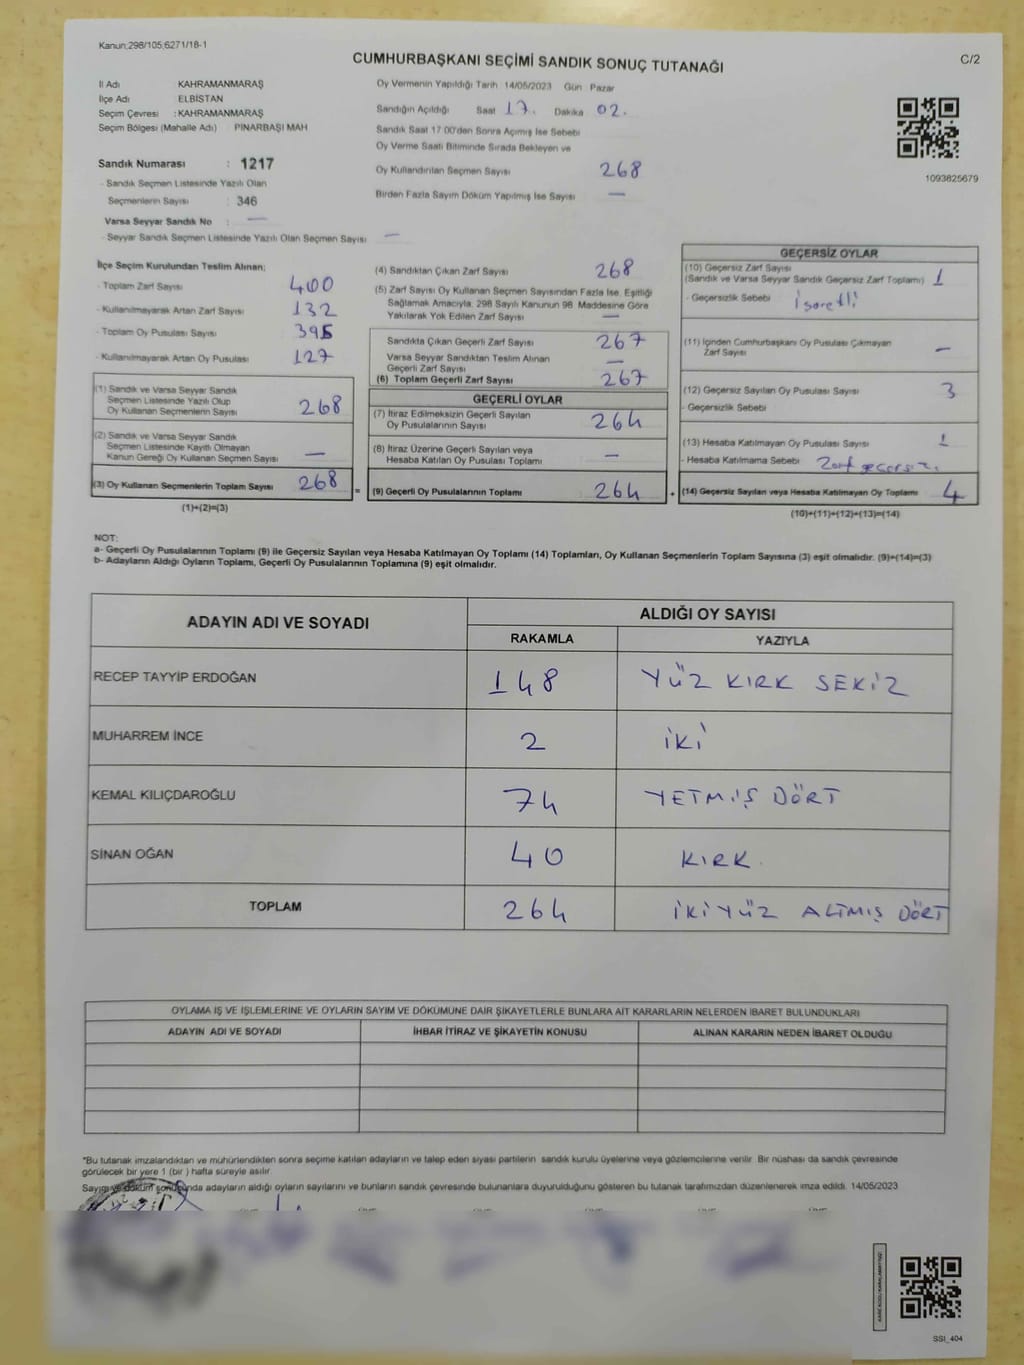 Kanun:298/105;6271/18-1
C/2
CUMHURBAŞKANI SEÇİMİ SANDIK SONUÇ TUTANAĞI
İl Adı KAHRAMANMARAŞ
İlçe Adı ELBİSTAN
Seçim Çevresi : KAHRAMANMARAŞ
Seçim Bölgesi (Mahalle Adı) PINARBAŞI MAH
Sandık Numarası : 1217
- Sandık Seçmen Listesinde Yazılı Olan
Seçmenlerin Sayısı : 346
Varsa Seyyar Sandık No : —
- Seyyar Sandık Seçmen Listesinde Yazılı Olan Seçmen Sayısı —
Oy Vermenin Yapıldığı Tarih 14/05/2023 Gün Pazar
Sandığın Açıldığı Saat 17. Dakika 02.
Sandık Saat 17:00'den Sonra Açımış İse Sebebi
Oy Verme Saati Bitiminde Sırada Bekleyen ve
Oy Kullandırılan Seçmen Sayısı 268
Birden Fazla Sayım Döküm Yapılmış İse Sayısı —
1093825679
İlçe Seçim Kurulundan Teslim Alınan:
- Toplam Zarf Sayısı 400
- Kullanılmayarak Artan Zarf Sayısı 132
- Toplam Oy Pusulası Sayısı 395
- Kullanılmayarak Artan Oy Pusulası 127
(1) Sandık ve Varsa Seyyar Sandık
Seçmen Listesinde Yazılı Olup
Oy Kullanan Seçmenlerin Sayısı 268
(2) Sandık ve Varsa Seyyar Sandık
Seçmen Listesinde Kayıtlı Olmayan
Kanun Gereği Oy Kullanan Seçmen Sayısı —
(3) Oy Kullanan Seçmenlerin Toplam Sayısı 268 =
(1)+(2)=(3)
(4) Sandıktan Çıkan Zarf Sayısı 268
(5) Zarf Sayısı Oy Kullanan Seçmen Sayısından Fazla İse, Eşitliği
Sağlamak Amacıyla; 298 Sayılı Kanunun 98. Maddesine Göre
Yakılarak Yok Edilen Zarf Sayısı —
Sandıkta Çıkan Geçerli Zarf Sayısı 267
Varsa Seyyar Sandıktan Teslim Alınan
Geçerli Zarf Sayısı —
(6) Toplam Geçerli Zarf Sayısı 267
GEÇERLİ OYLAR
(7) İtiraz Edilmeksizin Geçerli Sayılan
Oy Pusulalarının Sayısı 264
(8) İtiraz Üzerine Geçerli Sayılan veya
Hesaba Katılan Oy Pusulası Toplamı —
(9) Geçerli Oy Pusulalarının Toplamı 264 +
GEÇERSİZ OYLAR
(10) Geçersiz Zarf Sayısı
(Sandık ve Varsa Seyyar Sandık Geçersiz Zarf Toplamı) 1
- Geçersizlik Sebebi İşaretli
(11) İçinden Cumhurbaşkanı Oy Pusulası Çıkmayan
Zarf Sayısı —
(12) Geçersiz Sayılan Oy Pusulası Sayısı 3
- Geçersizlik Sebebi
(13) Hesaba Katılmayan Oy Pusulası Sayısı 1
- Hesaba Katılmama Sebebi Zarf geçersiz.
(14) Geçersiz Sayılan veya Hesaba Katılmayan Oy Toplamı 4
(10)+(11)+(12)+(13)=(14)
NOT:
a- Geçerli Oy Pusulalarının Toplamı (9) ile Geçersiz Sayılan veya Hesaba Katılmayan Oy Toplamı (14) Toplamları, Oy Kullanan Seçmenlerin Toplam Sayısına (3) eşit olmalıdır. (9)+(14)=(3)
b- Adayların Aldığı Oyların Toplamı, Geçerli Oy Pusulalarının Toplamına (9) eşit olmalıdır.
ADAYIN ADI VE SOYADI ALDIĞI OY SAYISI
RAKAMLA YAZIYLA
RECEP TAYYİP ERDOĞAN 148 YÜZ KIRK SEKİZ
MUHARREM İNCE 2 İKİ
KEMAL KILIÇDAROĞLU 74 YETMİŞ DÖRT
SİNAN OĞAN 40 KIRK.
TOPLAM 264 İKİYÜZ ALTMIŞ DÖRT
OYLAMA İŞ VE İŞLEMLERİNE VE OYLARIN SAYIM VE DÖKÜMÜNE DAİR ŞİKAYETLERLE BUNLARA AİT KARARLARIN NELERDEN İBARET BULUNDUKLARI
ADAYIN ADI VE SOYADI İHBAR İTİRAZ VE ŞİKAYETİN KONUSU ALINAN KARARIN NEDEN İBARET OLDUĞU
*Bu tutanak imzalandıktan ve mühürlendikten sonra seçime katılan adayların ve talep eden siyasi partilerin sandık kurulu üyelerine veya gözlemcilerine verilir. Bir nüshası da sandık çevresinde
görülecek bir yere 1 (bir) hafta süreyle asılır.
Sayım ve döküm sonucunda adayların aldığı oyların sayılarını ve bunların sandık çevresinde bulunanlara duyurulduğunu gösteren bu tutanak tarafımızdan düzenlenerek imza edildi. 14/05/2023
SSI_404